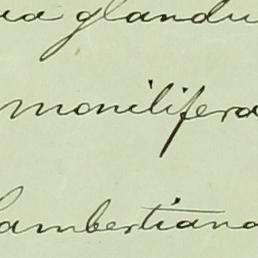 glandu
monilifera
Lambertiana